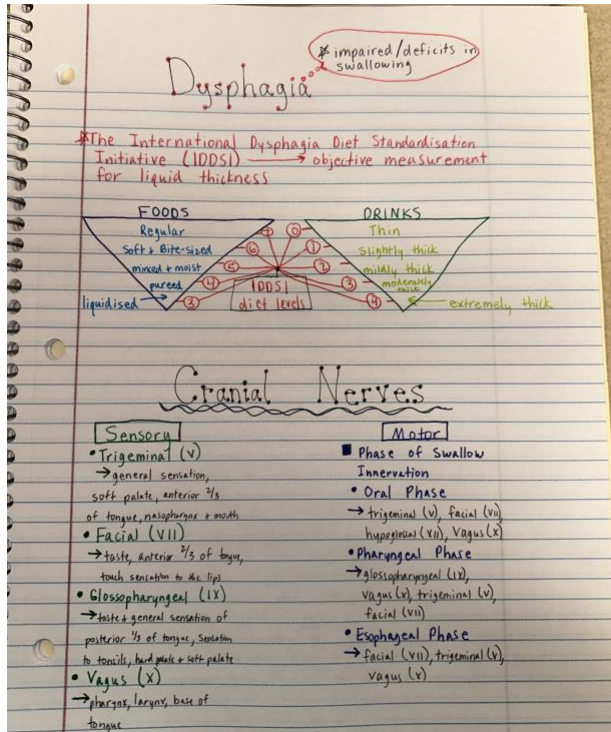 * impaired/deficits in
swallowing
Dysphagia
*The International Dysphagia Diet Standardisation
Initiative (IDDSI) → objective measurement
for liquid thickness
FOODS
Regular
Soft + Bite-sized
minced + moist
pureed
liquidised
7
6
5
4
3
IDDSI
diet levels
0
1
2
3
4
DRINKS
Thin
Slightly thick
mildly thick
moderately
thick
extremely thick
Cranial Nerves
Sensory
• Trigeminal (V)
→ general sensation,
soft palate, anterior 2/3
of tongue, nasopharynx + mouth
• Facial (VII)
→ taste, anterior 2/3 of tongue,
touch sensation to the lips
• Glossopharyngeal (IX)
→ taste + general sensation of
posterior 1/3 of tongue, sensation
to tonsils, hard palate + soft palate
• Vagus (X)
→ pharynx, larynx, base of
tongue
Motor
■ Phase of Swallow
Innervation
• Oral Phase
→ trigeminal (V), facial (VII)
hypoglossal (XII), Vagus (X)
• Pharyngeal Phase
→ glossopharyngeal (IX),
vagus (X), trigeminal (V),
facial (VII)
• Esophageal Phase
→ facial (VII), trigeminal (V),
vagus (X)